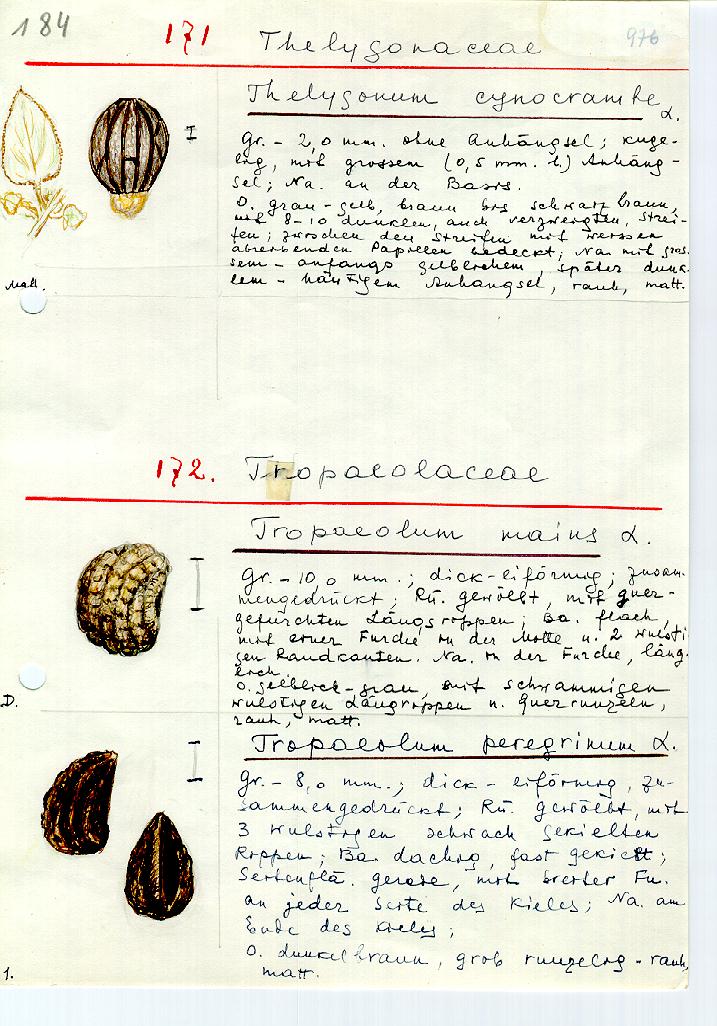 184
171 Thelygonaceae
976
Thelygonum cynocrambe L.
Gr. - 2,0 mm. ohne Anhängsel; kuge-
lig, mit grossem (0,5 mm. l.) Anhäng-
sel; Na. an der Basis.
O. grau-gelb, braun bis schwarz braun,
mit 8-10 dunklen, auch verzweigten, Strei-
fen; zwischen den Streifen mit weissen
abreibenden Papillen bedeckt; Na. mit gros-
sem - anfangs gelblichem, später dunk-
lem - häutigem Anhängsel, rauh, matt.
Mall.
172. Tropaeolaceae
Tropaeolum maius L.
Gr. - 10,0 mm.; dick-eiförmig; zusam-
mengedrückt; Rü. gewölbt, mit quer-
gefurchten Längsrippen; Ba. flach,
mit einer Furche in der Mitte u. 2 wulsti-
gen Randkanten. Na. in der Furche, läng-
lich.
O. gelblich-grau, mit schwammigen
wulstigen Längsrippen u. Querrunzeln,
rauh, matt.
D.
Tropaeolum peregrinum L.
Gr. - 8,0 mm.; dick-eiförmig, zu-
sammengedrückt; Rü. gewölbt, mit
3 wulstigen schwach gekielten
Rippen; Ba. dachig, fast gekielt;
Seitenflä. gerade, mit breiter Fu.
an jeder Seite des Kieles; Na. am
Ende des Kieles;
O. dunkelbraun, grob runzelig-rauh,
matt.
1.